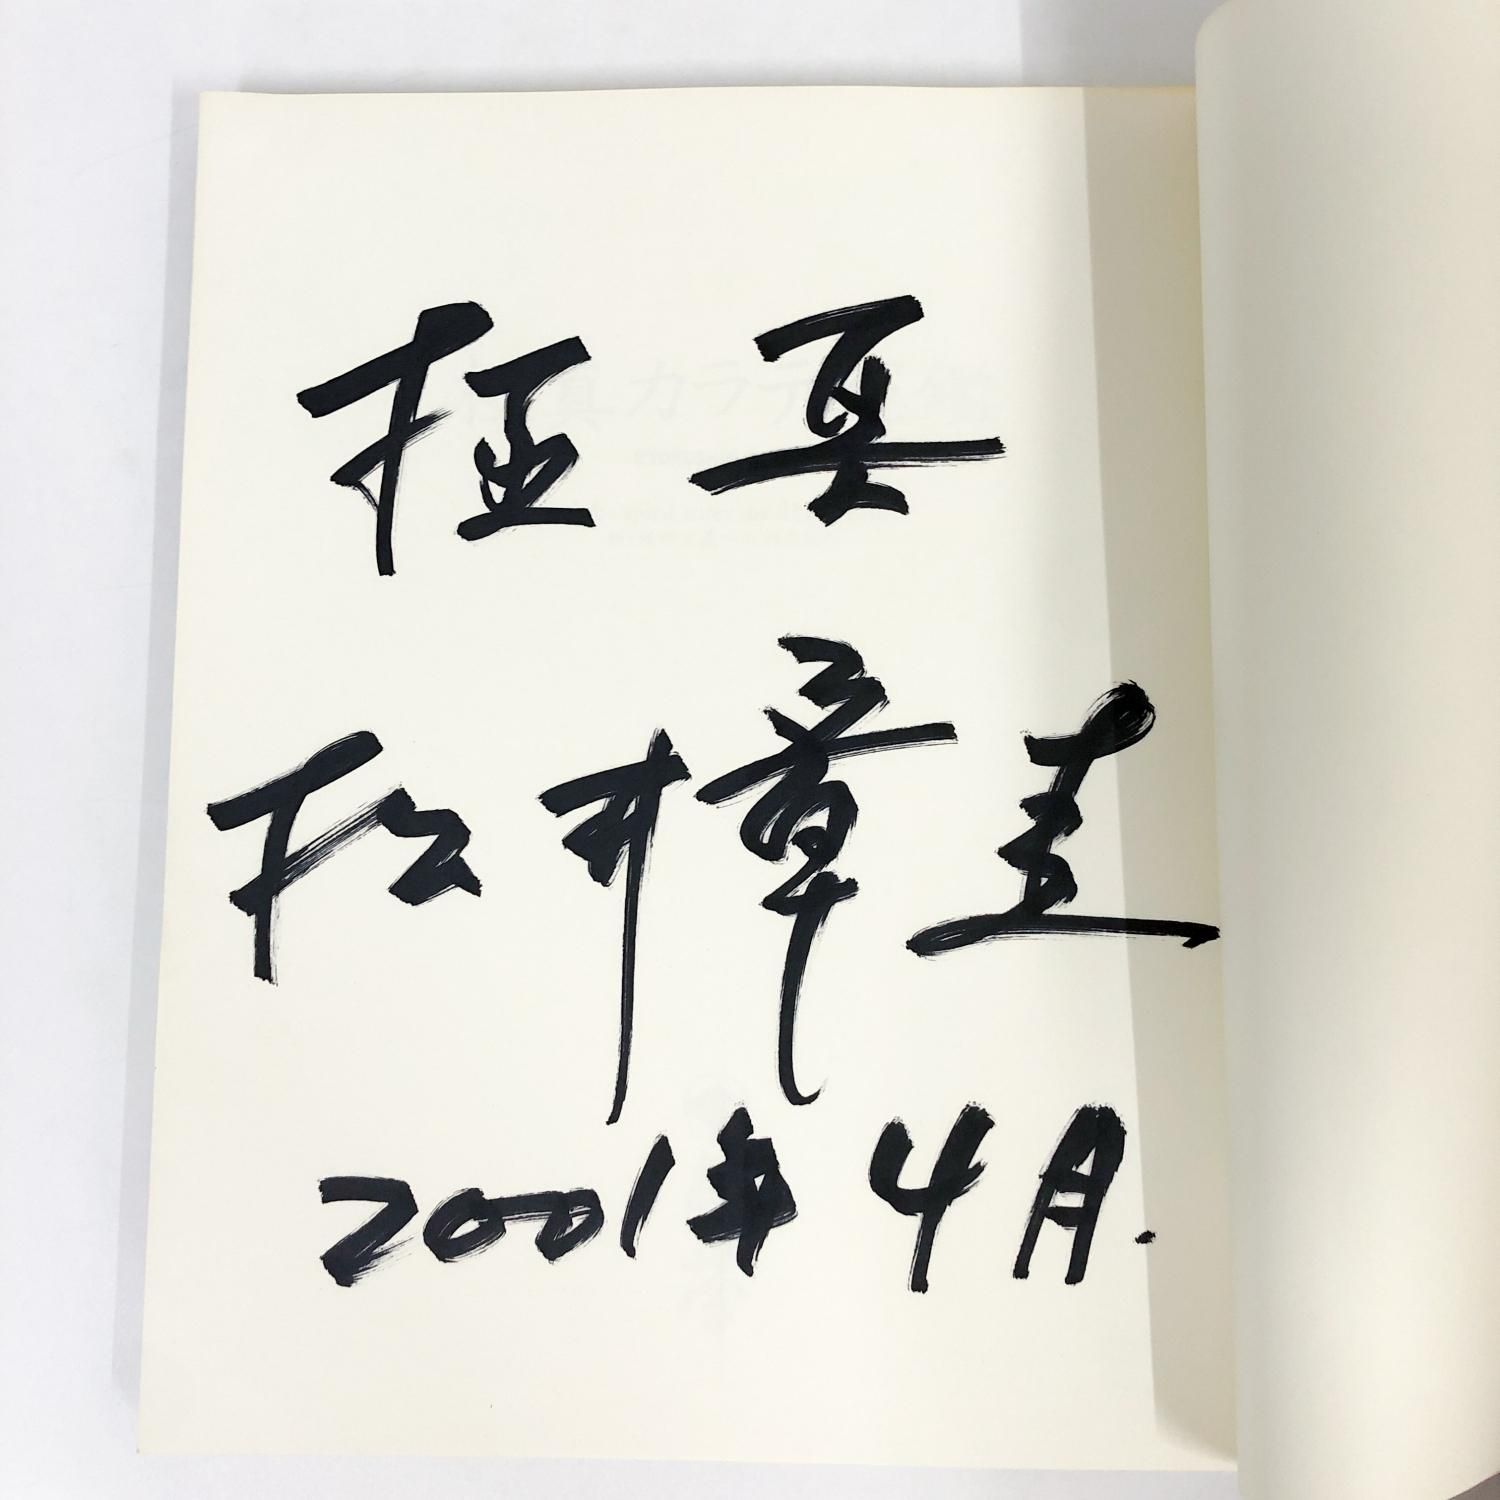 極真
松井章圭
2001年4月.